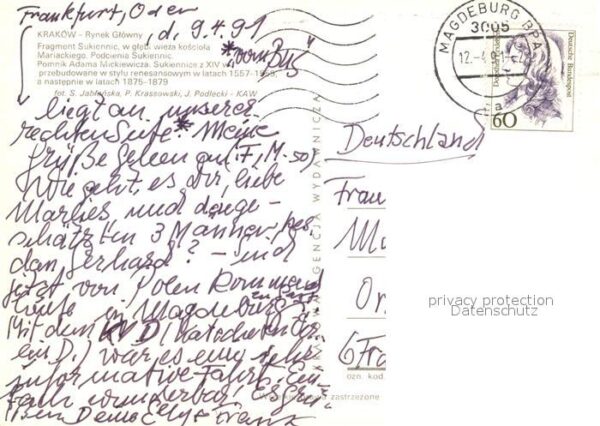 Frankfurt, Oder
d. 9.4.91
KRAKÓW - Rynek Główny
Fragment Sukiennic, w głębi wieża kościoła
Mariackiego. Podcienia Sukiennic.
Pomnik Adama Mickiewicza. Sukiennice z XIV w.
przebudowane w stylu renesansowym w latach 1557-1559,
a następnie w latach 1875-1879
fot. S. Jabłońska, P. Krassowski, J. Podlecki - KAW
*vom Bus
liegt an unserer
rechten Seite * Meine
Grüße gelten auch (F, M-50)
Wie geht es dir, liebe
Marlies, und den ge-
schätzten 3 Männer, bes.
dem Gerhard? - und
jetzt von Polen kommend
heute in Magdeburg
Mit dem KVD
war es eine sehr
informative Fahrt.
wunderbar
Frank
AGENCJA WYDAWNICZA
Deutschland
Fran
Mü
Or
6 Fra
ozn. kod.
zastrzeżone
MAGDEBURG BPA
3005
12.-4.91
a
Deutsche Bundespost
60
privacy protection
Datenschutz